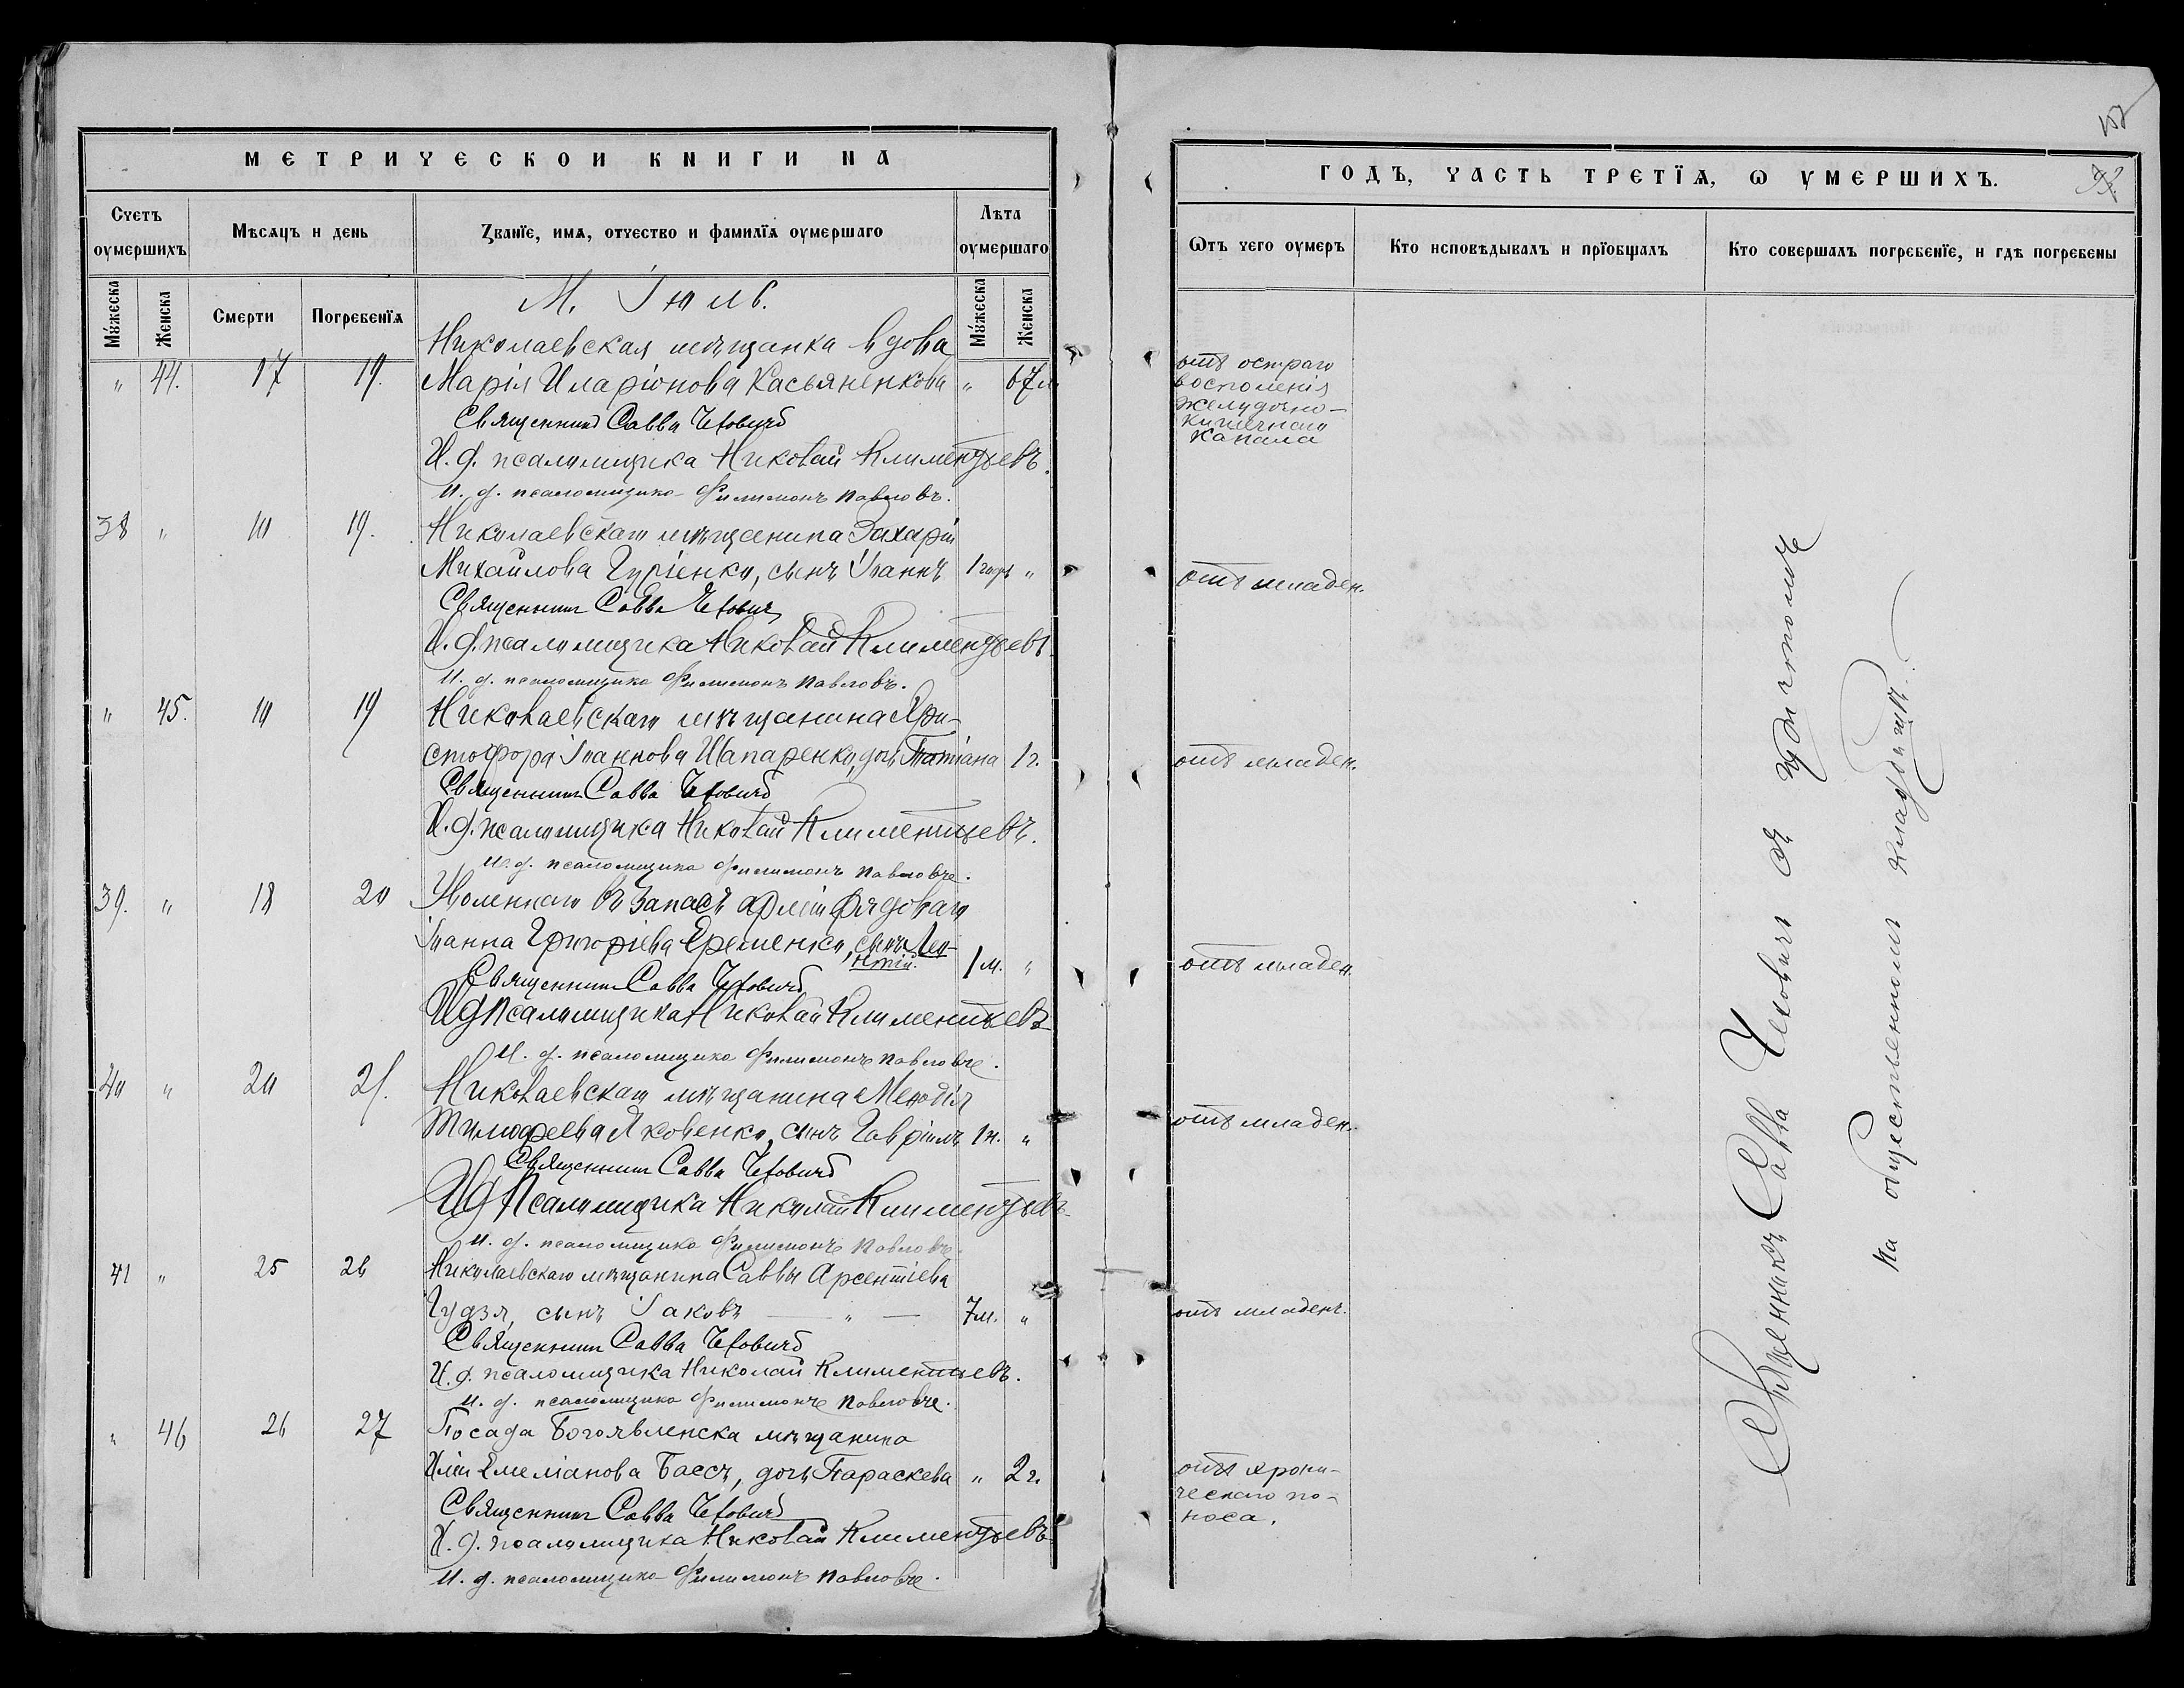 МЕТРИЧЕСКОЙ КНИГИ НА
Счетъ оумершихъ
Мѣсяцъ и день
Званїе, имя, отчество и фамилїя оумершаго
Лѣта оумершаго
Мужеска
Женска
Смерти
Погребенїя
Мужеска
Женска
М. Іюль.
Николаевская мѣщанка вдова
" 44. 17 19. Марія Иларіонова Касьяненкова " 67 л
Священникъ Савва Чеховичъ
И. д. псаломщика Николай Климентьевъ.
И. д. псаломщика Филимонъ Павловъ.
38 " 19. Николаевскаго мѣщанина Захарія
Михайлова Гуріенко, сынъ Іоаннъ 1 годъ "
Священникъ Савва Чеховичъ
И. д. псаломщика Николай Климентьевъ.
И. д. псаломщика Филимонъ Павловъ.
" 45. 19 Николаевскаго мѣщанина Хри-
стофора Іоаннова Шапаренко, дочь Татіана 1 г.
Священникъ Савва Чеховичъ
И. д. псаломщика Николай Климентьевъ.
И. д. псаломщика Филимонъ Павловъ.
39. " 18 20 Уволеннаго въ запасъ арміи рядоваго
Іоанна Григоріева Еременко, сынъ Леон-
тій. 1 м. "
Священникъ Савва Чеховичъ
И д псаломщика Николай Климентьевъ
И. д. псаломщика Филимонъ Павловъ.
40 " 20 21. Николаевскаго мѣщанина Меѳодія
Тимофеева Яковенко, сынъ Гавріилъ 1 н. "
Священникъ Савва Чеховичъ
И д Псаломщика Николай Климентьевъ
И. д. псаломщика Филимонъ Павловъ.
41 " 25 26 Николаевскаго мѣщанина Саввы Арсентіева
Гудзя, сынъ Іаковъ — " — 7 м. "
Священникъ Савва Чеховичъ
И. д. псаломщика Николай Климентьевъ.
И. д. псаломщика Филимонъ Павловъ.
" 46 26 27 Посада Богоявленска мѣщанина
Иліи Емеліанова Баесъ, дочь Параскева " 2 г.
Священникъ Савва Чеховичъ
И. д. псаломщика Николай Климентьевъ
И. д. псаломщика Филимонъ Павловъ.
ГОДЪ, ЧАСТЬ ТРЕТЇЯ, Ѡ УМЕРШИХЪ.
Ѿтъ чего оумеръ
Кто исповѣдывалъ и прїобщалъ
Кто совершалъ погребенїе, и гдѣ погребены
отъ остраго
воспаленія
желудочно-
кишечнаго
канала
отъ младен.
отъ младен.
отъ младен.
отъ младен.
отъ младенч.
отъ хрони-
ческаго по-
носа.
Священникъ Савва Чеховичъ съ причтомъ
на общественномъ кладбищѣ.